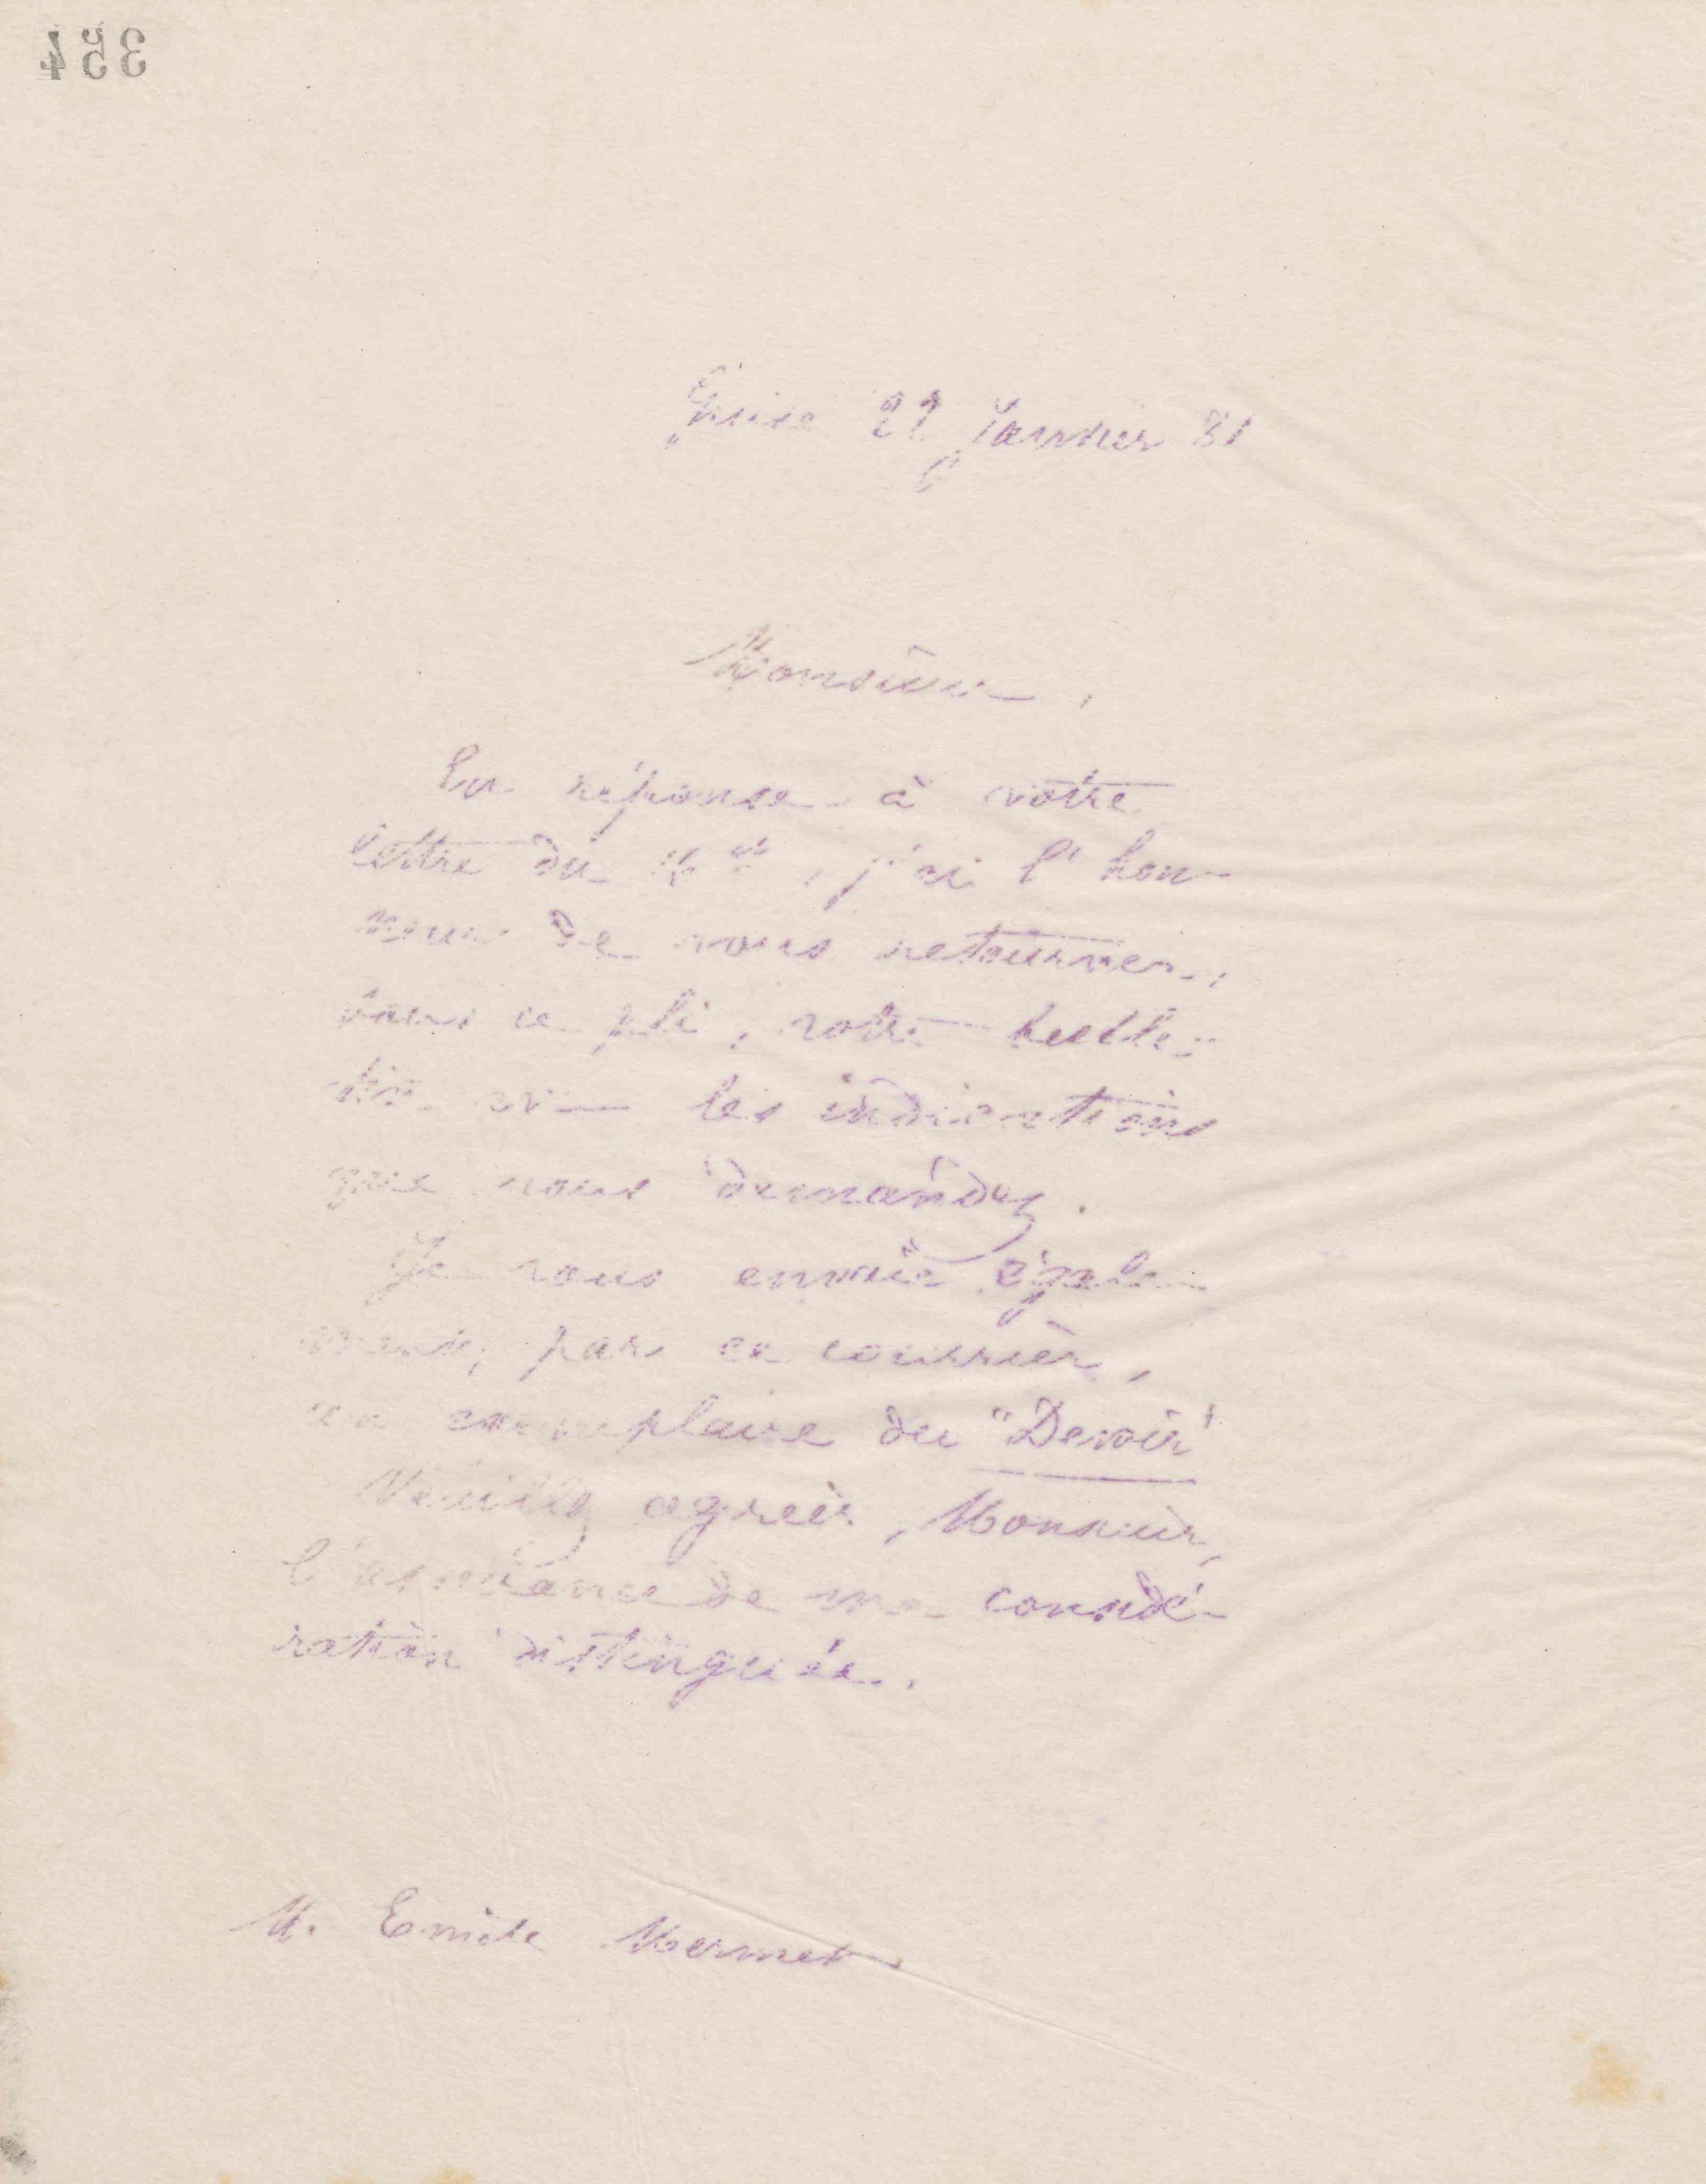 354
Guise 22 Janvier 81
Monsieur,
En réponse à votre
lettre du , j'ai l'hon-
neur de vous retourner,
sous ce pli, votre bulle-
tin avec les indications
que vous demandez.
Je vous envoie égale-
ment, par ce courrier,
un exemplaire du "Devoir"
Veuillez agréer, Monsieur,
l'assurance de ma considé-
ration distinguée.
M. Emile Mermet